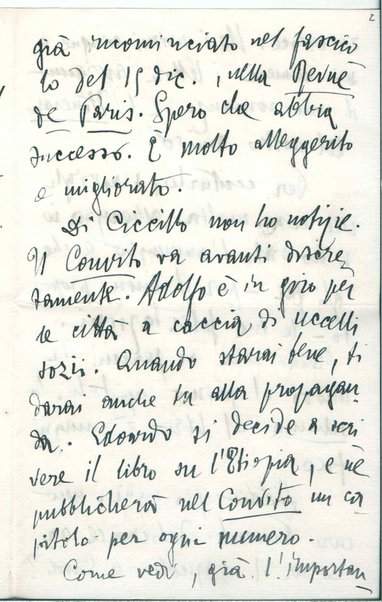 2
già incominciato nel fascico
lo del 15 dic., nella Revue
de Paris. Spero che abbia
successo. È molto alleggerito
e migliorato.
Di Ciccillo non ho notizie.
Il Convito va avanti discre
tamente. Adolfo è in giro per
le città a caccia di uccelli
sozii. Quando starai bene, ti
darai anche tu alla propagan
da. Edoardo si decide a scri
vere il libro su l'Etiopia, e ne
pubblicherà nel Convito un ca
pitolo per ogni numero
Come vedi, già l'importan